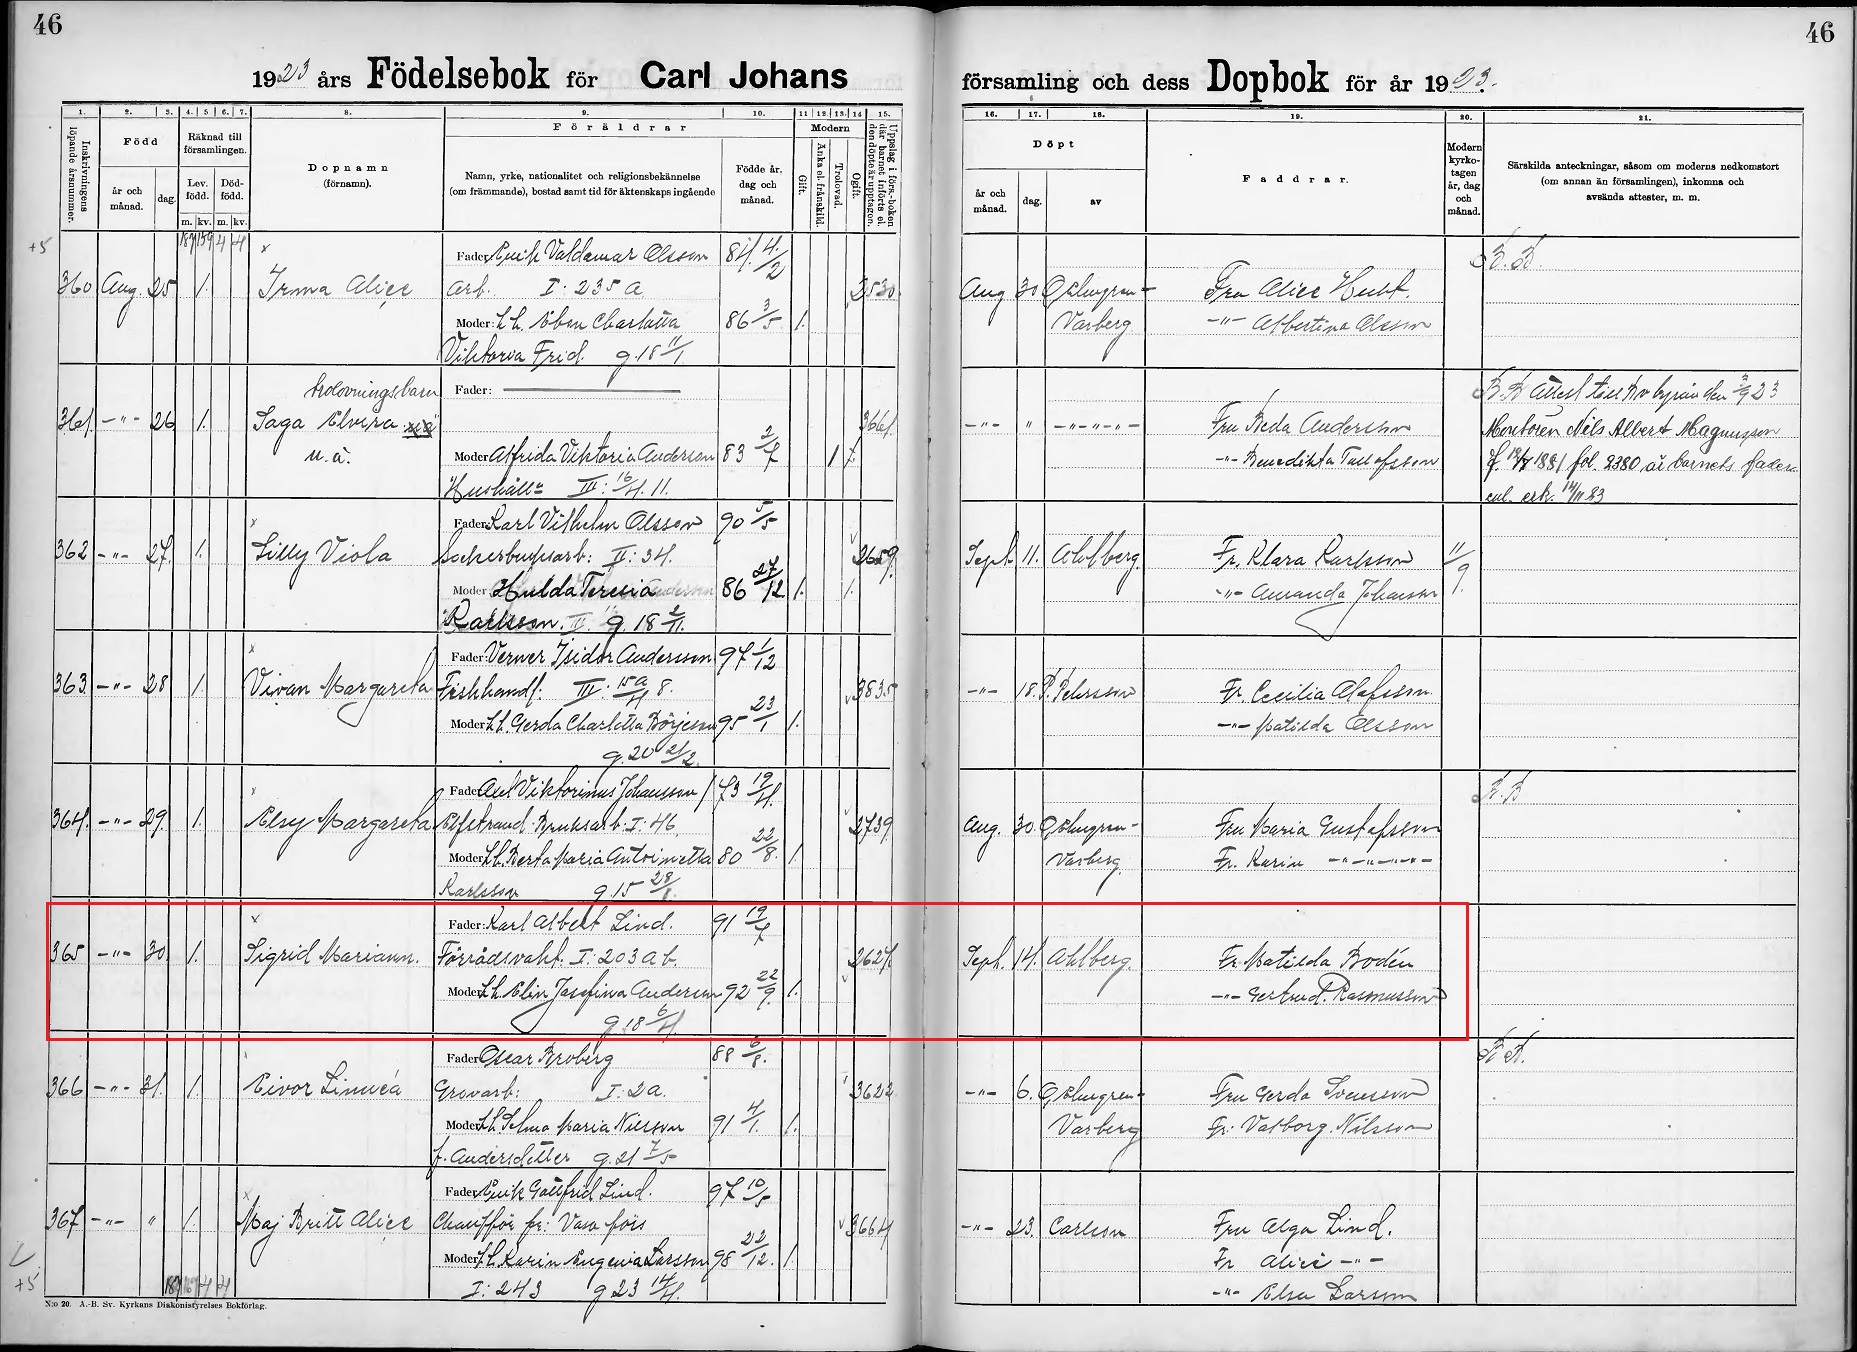 46
46
1923 års Födelsebok för Carl Johans
församling och dess Dopbok för år 1923.
1. 2. 3. 4. 5 6. 7. 8. 9. 10. 11 12 13 14 15.
Inskrivningens löpande årsnummer.
Född
år och månad.
dag.
Räknad till församlingen.
Lev. född.
Död-född.
m. kv. m. kv.
Dopnamn
(förnamn).
Föräldrar
Namn, yrke, nationalitet och religionsbekännelse
(om främmande), bostad samt tid för äktenskaps ingående
Födde år, dag och månad.
Modern
Gift.
Änka el. frånskild.
Trolovad.
Ogift.
Uppslag i förs.-boken där barnet införts el. den döpte är upptagen.
16. 17. 18. 19. 20. 21.
Döpt
år och månad.
dag.
av
Faddrar.
Modern kyrkotagen år, dag och månad.
Särskilda anteckningar, såsom om moderns nedkomstort
(om annan än församlingen), inkomna och
avsända attester, m. m.
+5
Fader: Erik Valdemar Olsson 84 4/2
360 Aug. 25 1. Irma Alice Arb. I: 235 a 2530
Moder: h. Ebon Charlotta 86 3/5 1.
Viktoria Frid. g. 18 11/1.
Aug 30 Holmgren- Fru Alice Hult.
Varberg -"- Albertina Olsson
B. B.
trolovningsbarn
Fader:
361. -"- 26 1. Saga Elvira 3661.
u.ä.
Moder: Alfrida Viktoria Anderson 83 2/7 1
Hushåll. III: 16/4. 11.
-"- " -"-"-"- Fru Beda Anderson
-"- Benedikta
B. B Attest till Bv byrån den 3/9 23
Montören Nils Albert Magnusson
f. 18/7 1881 fol. 2380, är barnets fader
enl. erk. 14/11 23
Fader: Karl Vilhelm Olsson 90 5/5
362 -"- 27. 1. Lilly Viola Sockerbruksarb: II: 34. 2659.
Moder: Hulda Teresia 86 27/12 1.
Karlsson. g. 18 2/11.
Sept. 11. Ahlberg. Fr. Klara Karlsson 11/9.
-"- Amanda Johanson
Fader: Verner Isidor Andersson 97 1/12
363 -"- 28 1. Vivan Margareta Fiskhandl: III: 15a/4 8. 3835
Moder: h. Gerda Charlotta Börjeson 95 23/1 1.
g. 20 21/2.
-"- 18. P. Pehrsson Fr. Cecilia Olofsson.
-"- Matilda Olsson
Fader: Axel Viktorinus Johansson 73 19/4.
364. -"- 29. 1. Elsy Margareta Elfstrand. Bruksarb. I: 46. 2739
Moder: h. Berta Maria Antoinetta 80 22/8. 1.
Karlsson g. 15 28/8.
Aug. 30. Holmgren- Fru Maria Gustafsson
Varberg Fr. Karin -"-"-"-
Fader: Karl Albert Lind. 91 19/7
365 -"- 30. 1. Sigrid Mariann. Förrådsvakt. I: 203 A b. 2627.
Moder: h. Elin Josefina Anderson 92 22/9. 1.
g. 18 6/4.
Sept. 14. Ahlberg. Fr. Matilda Bodén
-"- Gertrud. Rasmusson
Fader: Oscar Broberg 88 6/8.
366 -"- 31. 1. Eivor Linnéa Grovarb: I: 2a. 3622
Moder: h. Selma Maria Nilsson 91 4/1. 1.
f. Andersdotter g. 21 7/5
-"- 6. Holmgren- Fru Gerda Svensson
Varberg Fr. Valborg. Nilsson
B B.
Fader: Erik Gottfrid Lind. 97 10/5
367. -"- " 1. Maj Britt Alice Chaufför fr: Vasa förs 3664
Moder: h. Karin Eugenia Larsson 98 22/12. 1.
I: 243 g 23 14/4.
-"- 23. Carlson Fru Olga Lind.
Fr Alice -"-
-"- Elsa Larsson
+5
N:o 20. A.-B. Sv. Kyrkans Diakonistyrelses Bokförlag.